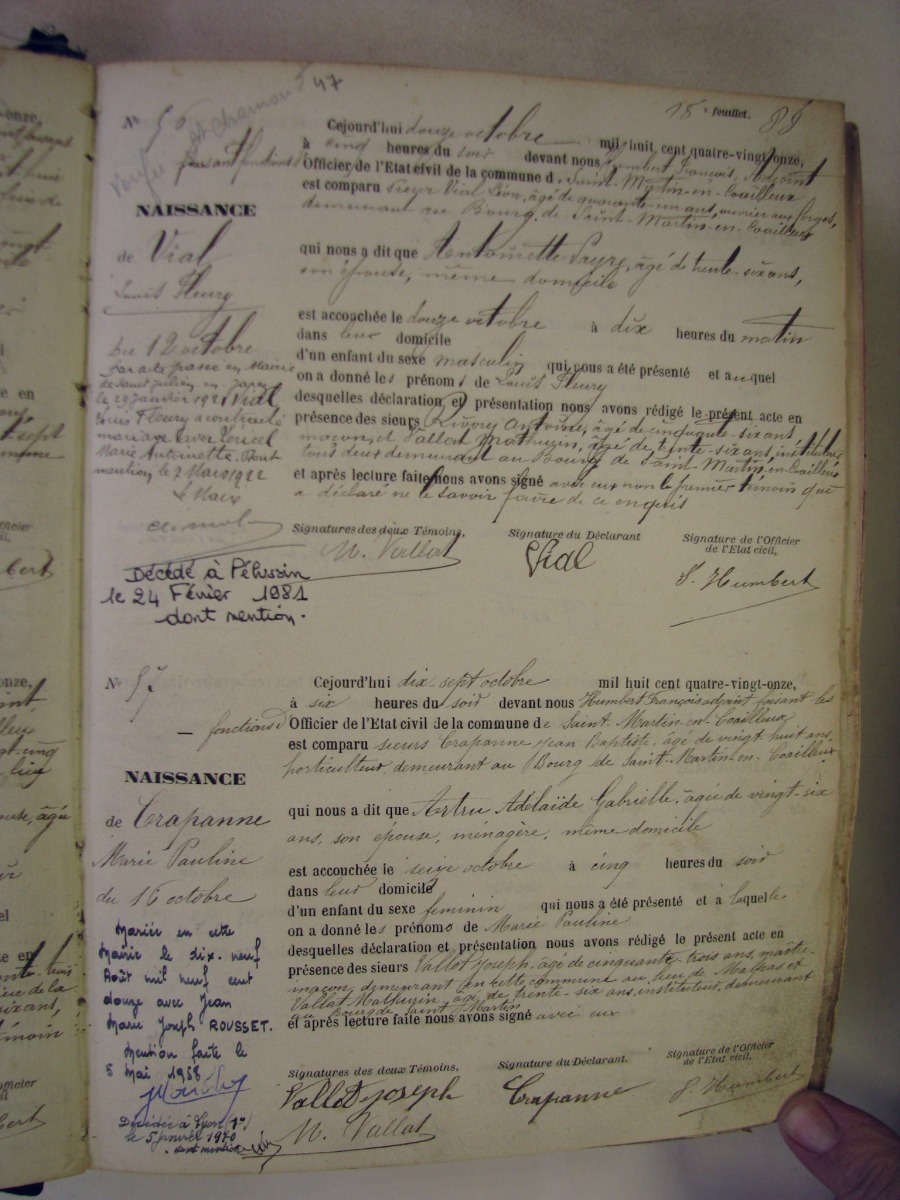 47
15e feuillet. 89
N° 56
Cejourd'hui douze octobre mil huit cent quatre-vingt-onze,
à cinq heures du soir devant nous Humbert François, Adjoint
faisant fonctions d'Officier de l'Etat civil de la commune de Saint-Martin-en-Coailleux
est comparu sieur Vial Léon, âgé de quarante un ans, ouvrier aux forges,
demeurant au Bourg de Saint-Martin-en-Coailleux
NAISSANCE
de Vial
Louis Fleury
qui nous a dit que Antoinette Payre, âgé de trente-six ans,
son épouse, même domicile
est accouchée le douze octobre à dix heures du matin
dans leur domicile
d'un enfant du sexe masculin qui nous a été présenté et auquel
on a donné les prénoms de Louis Fleury
desquelles déclaration et présentation nous avons rédigé le présent acte en
présence des sieurs Rivory Antoine, âgé de cinquante-six ans
maçon, et Vallat Mathurin, âgé de trente-six ans, instituteur
tous deux demeurant au Bourg de Saint-Martin-en-Coailleux
et après lecture faite nous avons signé avec eux non le premier témoin qui
a déclaré ne le savoir faire de ce enquis
Du 12 octobre
par acte passé en Mairie
de Saint Julien en Jarez
le 29 Janvier 1921 Vial
Louis Fleury a contracté
mariage avec
Marie Antoinette. Dont
mention le 2 Mars 1922
Le Maire
Décédé à Pélussin
le 24 Février 1981
dont mention.
Signatures des deux Témoins, Signature du Déclarant Signature de l'Officier
de l'Etat civil,
M. Vallat Vial F. Humbert
N° 57
Cejourd'hui dix-sept octobre mil huit cent quatre-vingt-onze,
à six heures du soir devant nous Humbert François adjoint faisant les
fonctions d'Officier de l'Etat civil de la commune de Saint-Martin-en-Coailleux
est comparu sieurs Crapanne Jean Baptiste, âgé de vingt huit ans,
horticulteur, demeurant au Bourg de Saint-Martin-en-Coailleux
NAISSANCE
de Crapanne
Marie Pauline
du 16 octobre
qui nous a dit que Artru Adelaïde Gabrielle, âgée de vingt-six
ans, son épouse, ménagère, même domicile
est accouchée le seize octobre à cinq heures du soir
dans leur domicile
d'un enfant du sexe féminin qui nous a été présenté et à laquelle
on a donné les prénoms de Marie Pauline
desquelles déclaration et présentation nous avons rédigé le présent acte en
présence des sieurs Vallot Joseph, âgé de cinquante-trois ans, maître-
maçon, demeurant en cette commune au lieu de Malpas et
Vallat Mathurin, âgé de trente-six ans, instituteur, demeurant
au Bourg de Saint Martin
et après lecture faite nous avons signé avec eux
Mariée en cette
Mairie le dix-neuf
Août mil neuf cent
douze avec Jean
Marie Joseph ROUSSET.
Mention faite le
5 Mai 1958
Décédée à Lyon
le 5 janvier 1970
dont mention
Signatures des deux Témoins, Signature du Déclarant. Signature de l'Officier
de l'Etat civil,
Vallot Joseph Crapanne F. Humbert
M. Vallat